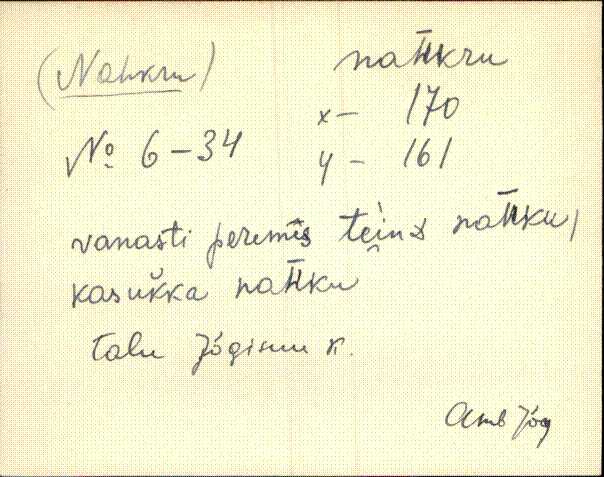 (Nahkru)
naHkru
x – 170
№ 6 – 34
y – 161
vanasti peremīs tein̬D naHku,
kasuk̆ka naHku
talu Jõgisuu k.
Amb Jõg